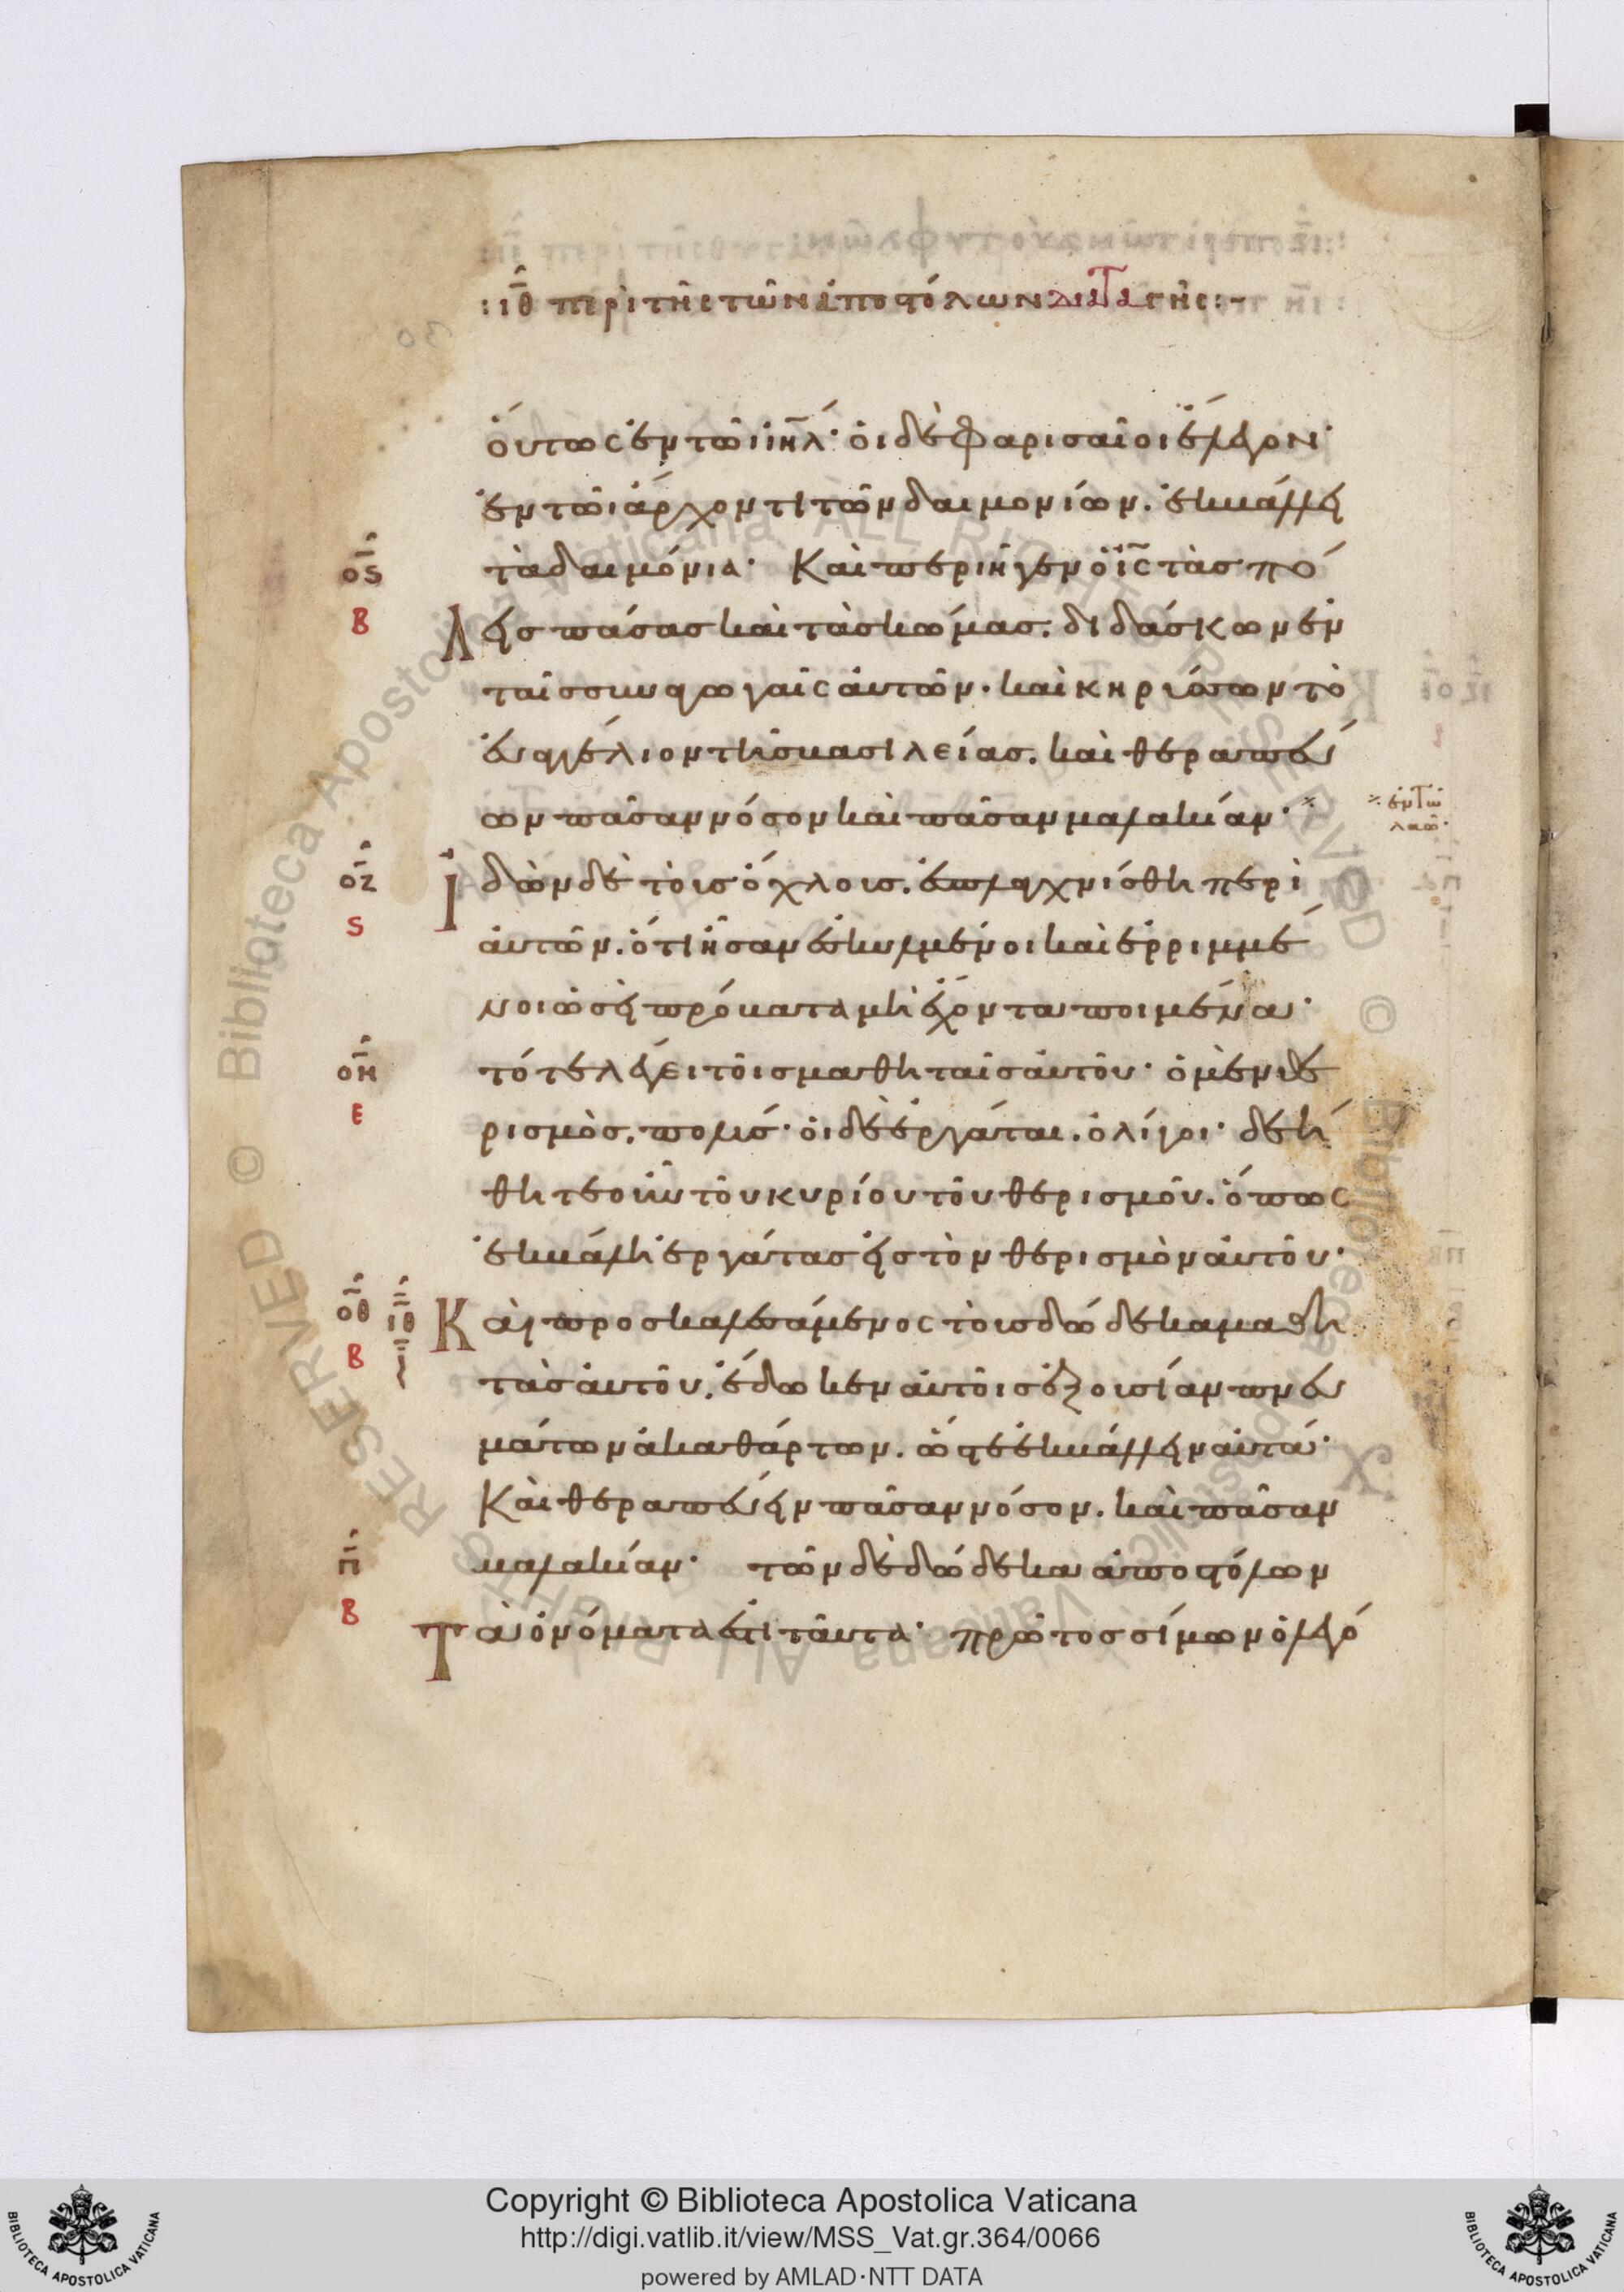 :ιθ περὶ τῆς τῶν ἀποστόλων διαταγῆς:~
ὅυτως ἐν τῶι ιη̅λ· ὁι δὲ φαρισαῖοι ἔλεγον·
ἐν τῶι ἄρχοντι τῶν δαιμονίων. ἐκβάλλει
ος τὰ δαιμόνια· Καὶ περιῆγεν ὁ ι̅ς̅ τὰς πό
β λεις πάσας καὶ τὰς κώμας. διδάσκων ἐν
ταῖς συναγωγαῖς ἀυτῶν. καὶ κηρύσσων τὸ
ἐυαγγέλιον τῆς βασιλείας. καὶ θεραπεύ
ων πᾶσαν νόσον καὶ πᾶσαν μαλακίαν·
ἐν τῶ
λαῶ·
οζ Ἰδὼν δὲ τοὶς ὄχλοις. ἐσπλαγχνίσθη περὶ
ς ἀυτῶν. ὅτι ἦσαν ἐσκυλμένοι καὶ ἐρριμμέ
νοι ὡσεὶ πρόβατα μὴ ἔχοντα ποιμένα·
οη τότε λέγει τοῖς μαθηταῖς ἀυτοῦ· ὁ μὲν θε
ε ρισμὸς. πολύς· ὁι δὲ ἐργάται. ὀλίγοι· δεή
θητε οὖν τοῦ κυρίου τοῦ θερισμοῦ. ὅπως
ἐκβάλη ἐργάτας εἰς τὸν θερισμὸν ἀυτοῦ·
οθ ιθ Καὶ προσκαλεσάμενος τοὶς δώδεκα μαθη
β ι τὰς ἀυτοῦ. ἔδωκεν ἀυτοῖς ἐξουσίαν πνευ
μάτων ἀκαθάρτων. ὥστε ἐκβάλλειν ἀυτά·
Καὶ θεραπεύειν πᾶσαν νόσον. καὶ πᾶσαν
π μαλακίαν· τῶν δὲ δώδεκα ἀποστόλων
β Τὰ ὀνόματα ἐστὶ ταῦτα· πρῶτος σίμων ὁ λεγό
Copyright © Biblioteca Apostolica Vaticana
http://digi.vatlib.it/view/MSS_Vat.gr.364/0066
powered by AMLAD·NTT DATA
BIBLIOTECA APOSTOLICA VATICANA
BIBLIOTECA APOSTOLICA VATICANA
© Biblioteca Apostolica Vaticana ALL RIGHTS RESERVED
© Biblioteca Apostolica Vaticana ALL RIGHTS RESERVED